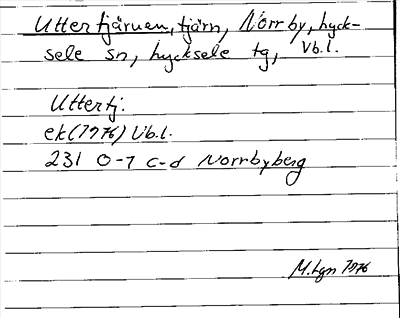 Uttertjärnen, tjärn, Norrby, Lyck-
sele sn, Lycksele tg, Vb.l.
Uttertj.
ek (1976) Vb.l.
231 0-1 c-d Norrbyberg
M. Lgn 1976